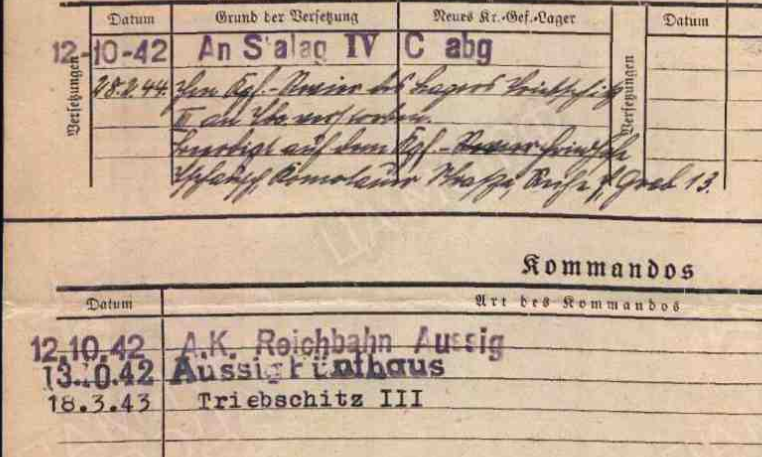 Datum Grund der Versetzung Neues Kr.-Gef.-Lager Datum
12-10-42 An Stalag IV C abg
Versetzungen
Versetzungen
28.2.44. Im Kgf.-Revier des Lagers Triebschitz
III an Tbc verstorben.
Beerdigt auf dem Kgf.-
Komotauer Straße, Reihe Grab 13.
Kommandos
Datum Art des Kommandos
12.10.42 A.K. Reichbahn Aussig
13.10.42 Aussig
18.3.43 Triebschitz III